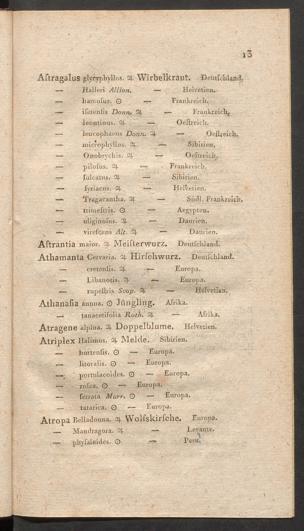 13
Aſtragalus glycyphyllos. ♃ Wirbelkraut. Deutſchland.
— Halleri Allion. — Helvetien.
— hamoſus. ⊙ — Frankreich.
— iſetenſis Donn. ♃ — Frankreich.
— leontinus. ♃ — Oeſtreich.
— leucophaeus Donn. ♃ — Oeſtreich.
— microphyllos. ♃ — Sibirien.
— Onobrychis. ♃ — Oeſtreich.
— piloſus. ♃ — Frankreich.
— ſulcatus. ♃ — Sibirien.
— ſyriacus. ♃ — Helvetien.
— Tragacantha. ♃ — Südl. Frankreich.
— trimeſtris. ⊙ — Aegypten.
— uliginoſus. ♃ — Daurien.
— vireſcens Ait. ♃ — Daurien.
Aſtrantia maior. ♃ Meiſterwurz. Deutſchland.
Athamanta Cervaria. ♃ Hirſchwurz. Deutſchland.
— cretenſis. ♃ — Europa.
— Libanotis. ♃ — Europa.
— rupeſtris Scop. ♃ — Helvetien.
Athanaſia annua. ⊙ Jüngling. Afrika.
— tanacetifolia Roth. ♃ — Afrika.
Atragene alpina. ♃ Doppelblume. Helvetien.
Atriplex Halimus. ♃ Melde. Sibirien.
— hortenſis. ⊙ — Europa.
— litoralis. ⊙ — Europa.
— portulacoides. ⊙ — Europa.
— roſea. ⊙ — Europa.
— ſerrata Murr. ⊙ — Europa.
— tatarica. ⊙ — Europa.
Atropa Belladonna. ♃ Wolfskirſche. Europa.
— Mandragora. ♃ — Levante.
— phyſaloides. ⊙ — Peru.